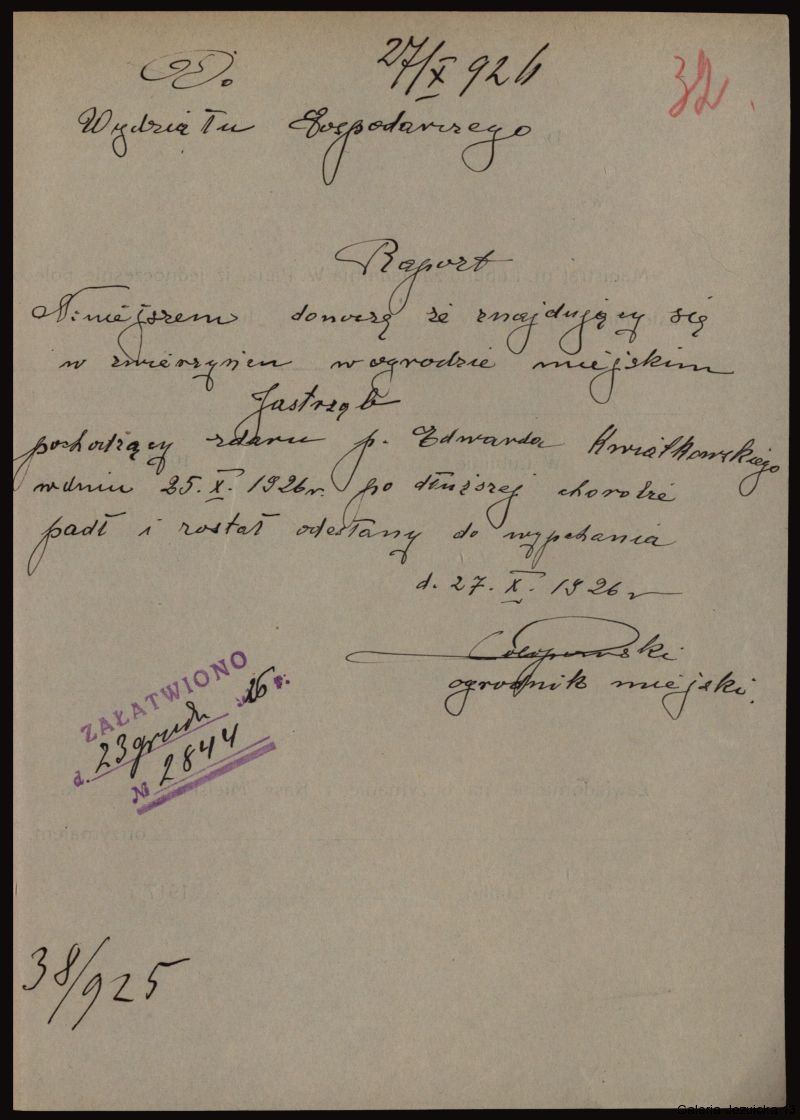 Do
27/X 926
32.
Wydziału Gospodarczego
Raport
Niniejszem donoszę że znajdujący się
w zwierzyńcu w ogrodzie miejskim
Jastrząb
pochodzący zdaru p. Edwarda Kwiatkowskiego
wdniu 25. X. 1926 r. po dłuższej chorobie
padł i został odesłany do wypchania
d. 27. X. 1926 r
ogrodnik miejski.
ZAŁATWIONO
d. 23 grudn 26 r.
№ 2844
38/925
Galeria Jezuicka